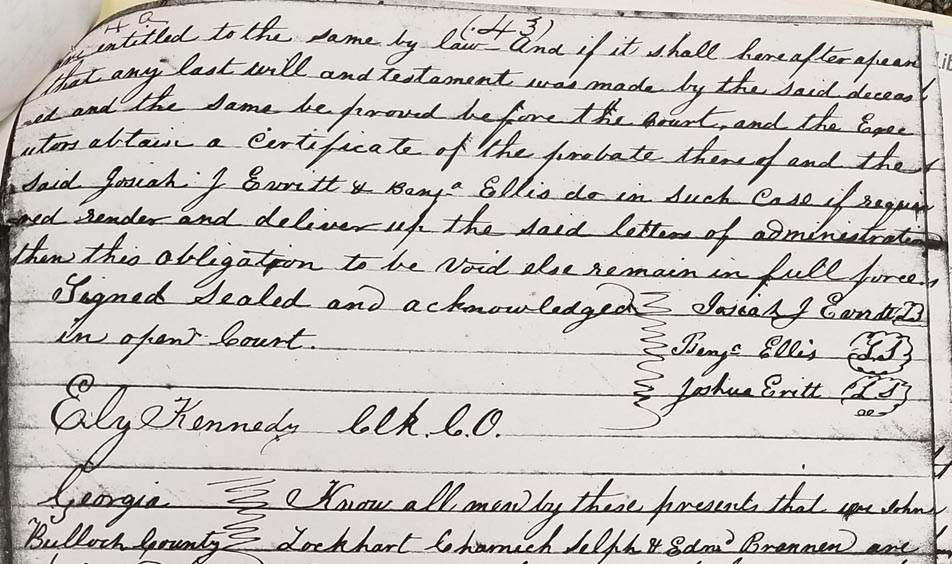 (43)
entitled to the same by law And if it shall hereafter apean
that any last will and testament was made by the said deceas
ed and the same be proved before the Court, and the Exec
utors obtain a Certificate of the probate thereof and the
said Josiah J Evritt & Benja Ellis do in such Case if requir
red render and deliver up the said letters of administration
then this obligation to be Void else remain in full force.
Signed Sealed and acknowledged Josiah J Evritt
in open Court.
Benja Ellis LS
Joshua Evitt LS
Ely Kennedy Clk. C.O.
Georgia Know all men by these presents that we John
Bulloch County Lockhart Charnich Selph & Edmd Brannen are